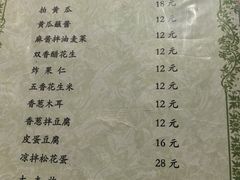 拍黄瓜 18元
黄瓜蘸酱 12元
麻酱拌油麦菜 12元
双香醋花生 12元
炸果仁 12元
五香花生米 12元
香葱木耳 12元
香葱拌豆腐 12元
皮蛋豆腐 16元
凉拌松花蛋 28元